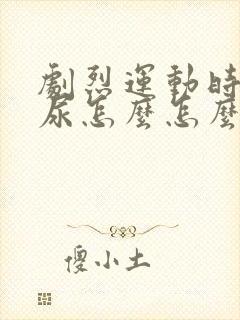 劇烈運動時
尿怎麼怎麼
傻小土